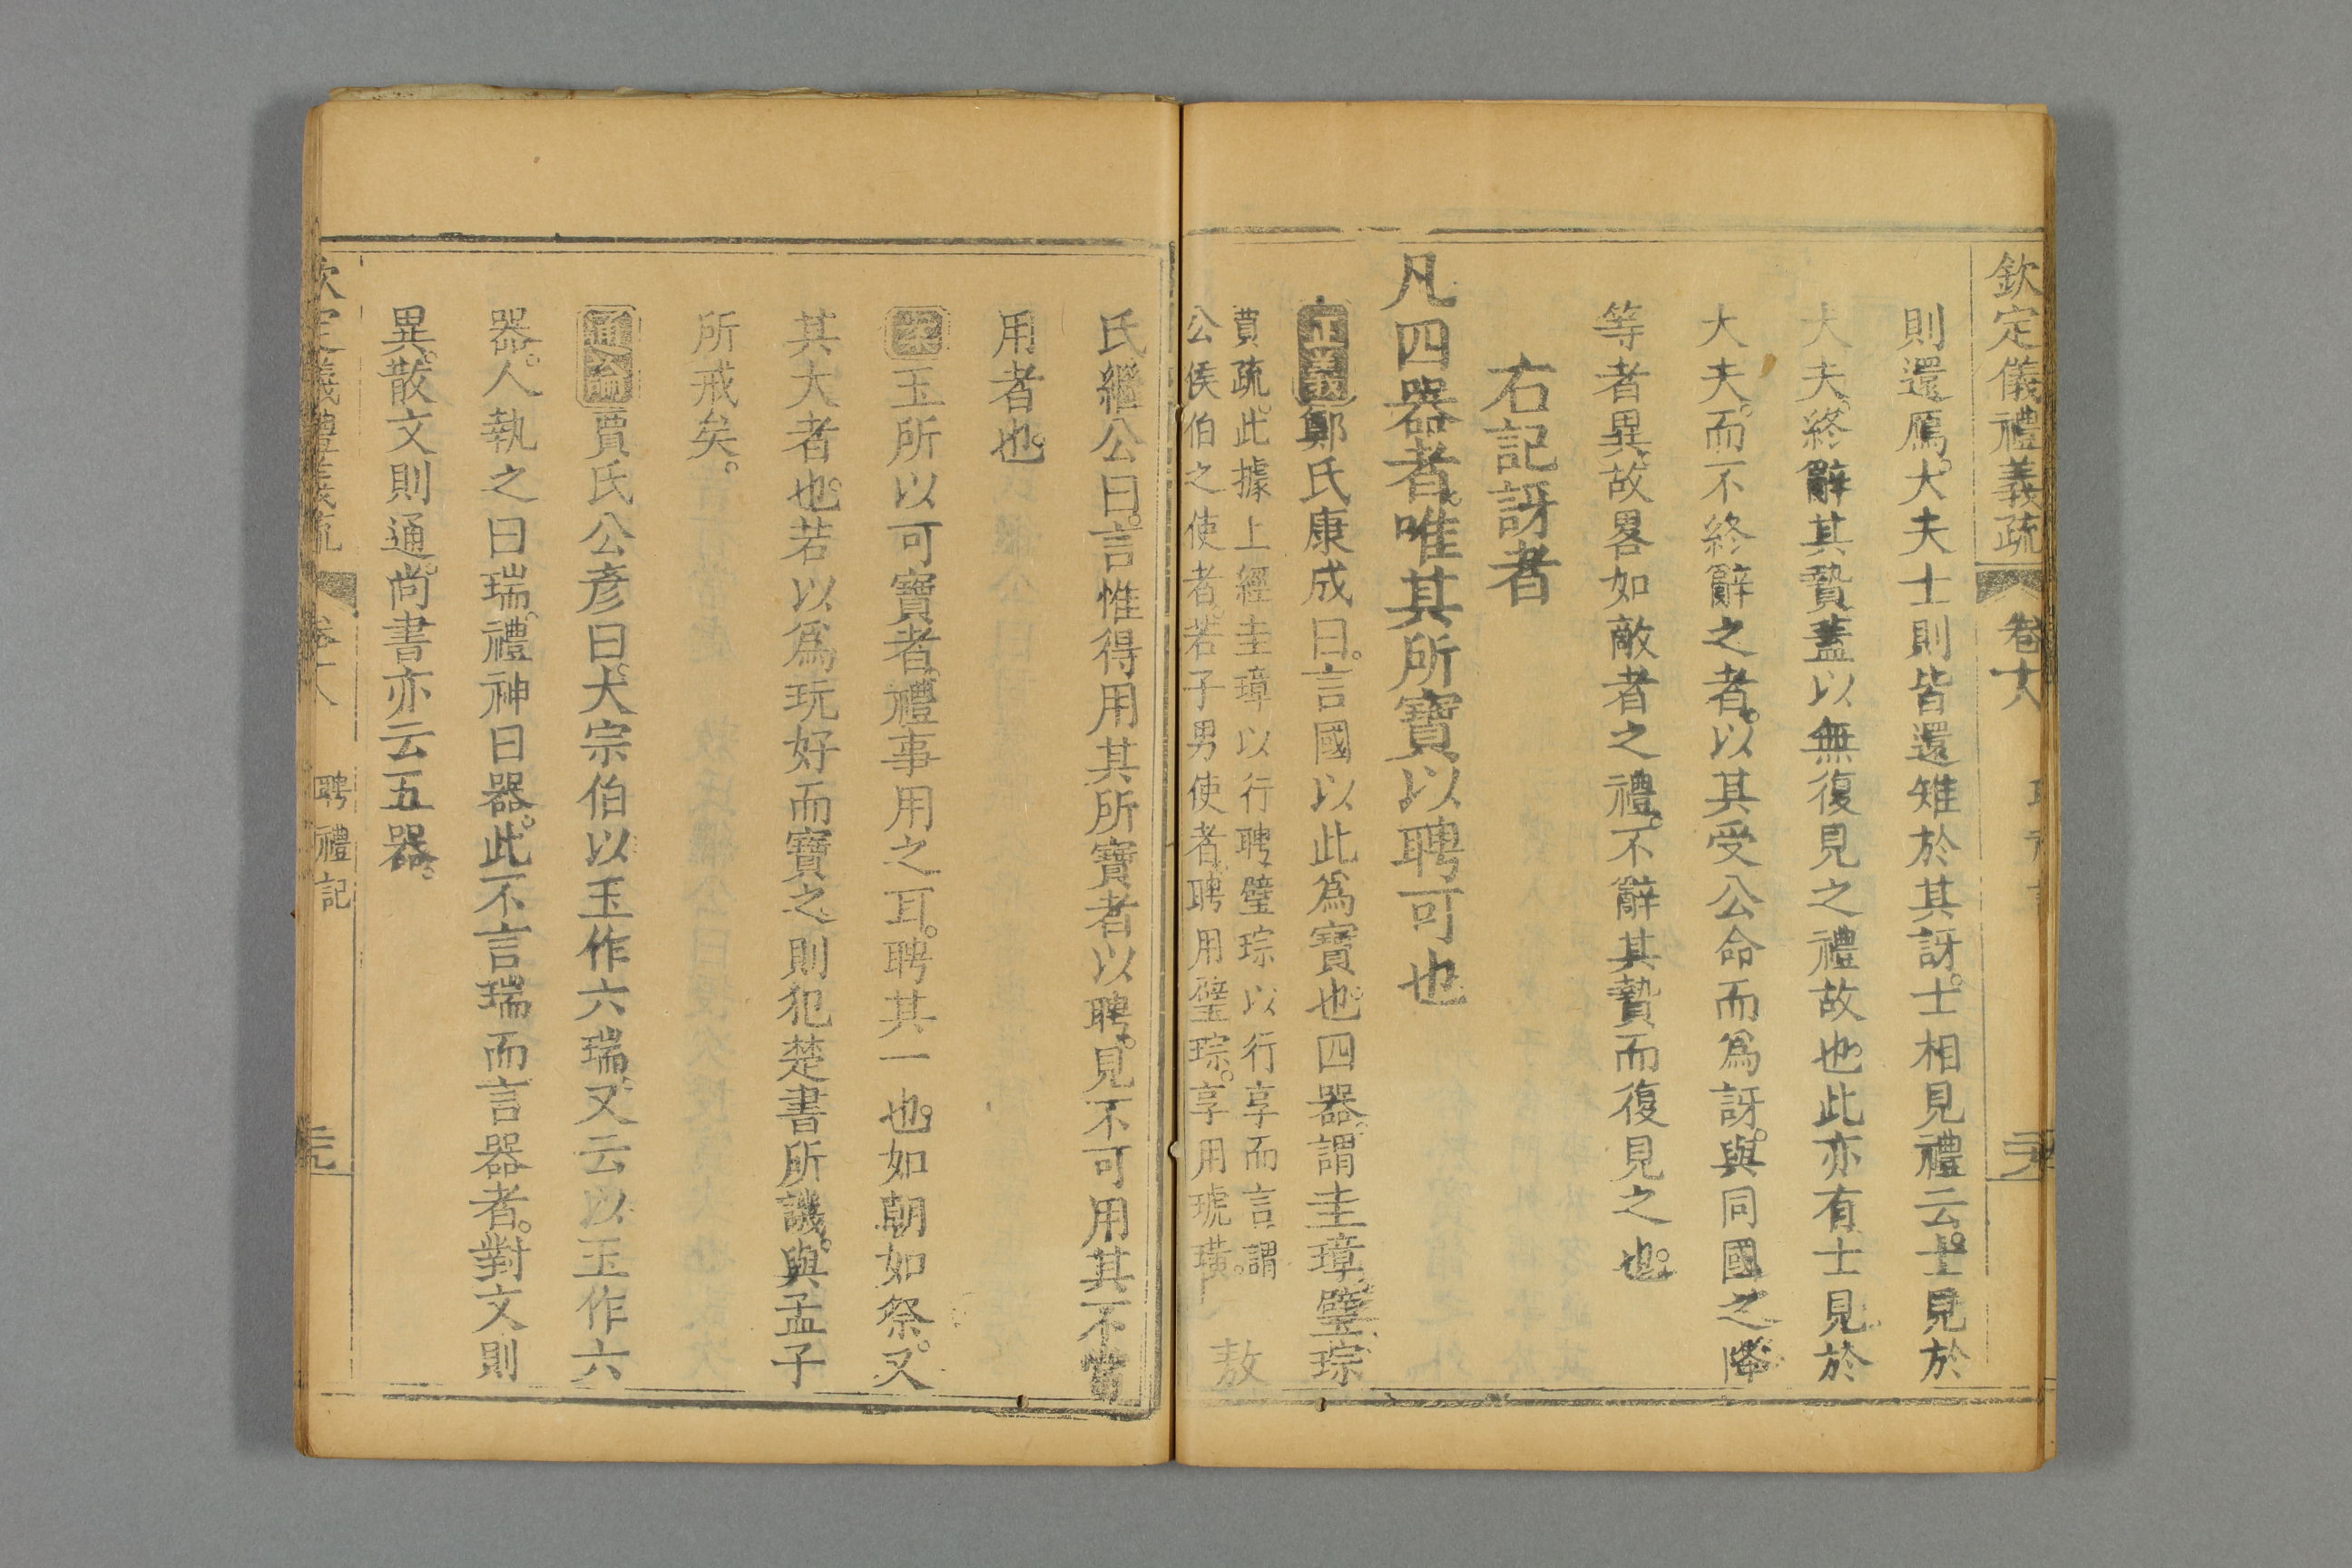 欽定儀禮義疏 卷十八
則還鴈。大夫士則皆還雉於其訝。士相見禮云。士見於
大夫。終辭其贄。蓋以無復見之禮故也。此亦有士見於
大夫。而不終辭之者。以其受公命而爲訝。與同國之降
等者異。故畧如敵者之禮。不辭其贄而復見之也。
右記訝者
凡四器者。唯其所寶以聘可也
正義鄭氏康成曰。言國以此爲寶也。四器。謂圭璋璧琮
賈疏。此據上經圭璋以行聘璧琮以行享而言謂
公侯伯之使者。若子男使者。聘用璧琮。享用琥璜。
敖
氏繼公曰。言惟得用其所寶者以聘。見不可用其不當
用者也。
案玉所以可寶者。禮事用之耳。聘其一也。如朝如祭。又
其大者也。若以爲玩好而寶之。則犯楚書所譏。與孟子
所戒矣。
通論賈氏公彥曰。大宗伯以玉作六瑞。又云以玉作六
器。人執之曰瑞。禮神曰器。此不言瑞而言器者。對文則
異。散文則通。尚書亦云五器。
欽定儀禮義疏 卷十八 聘禮記